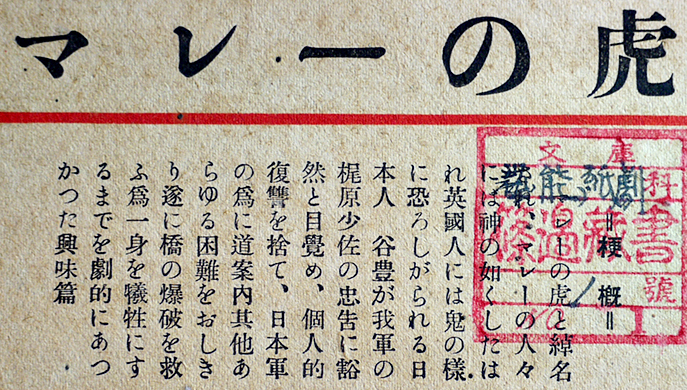 マレーの虎
＝梗概＝
マレーの虎と綽名
され、マレーの人々
には神の如くしたは
れ英國人には鬼の様
に恐ろしがられる日
本人　谷豊が我軍の
梶原少佐の忠告に豁
然と目覺め、個人的
復讐を捨て、日本軍
の爲に道案内其他あ
らゆる困難をおしき
り遂に橋の爆破を救
ふ爲一身を犠牲にす
るまでを劇的にあつ
かつた興味篇
文庫
科
號